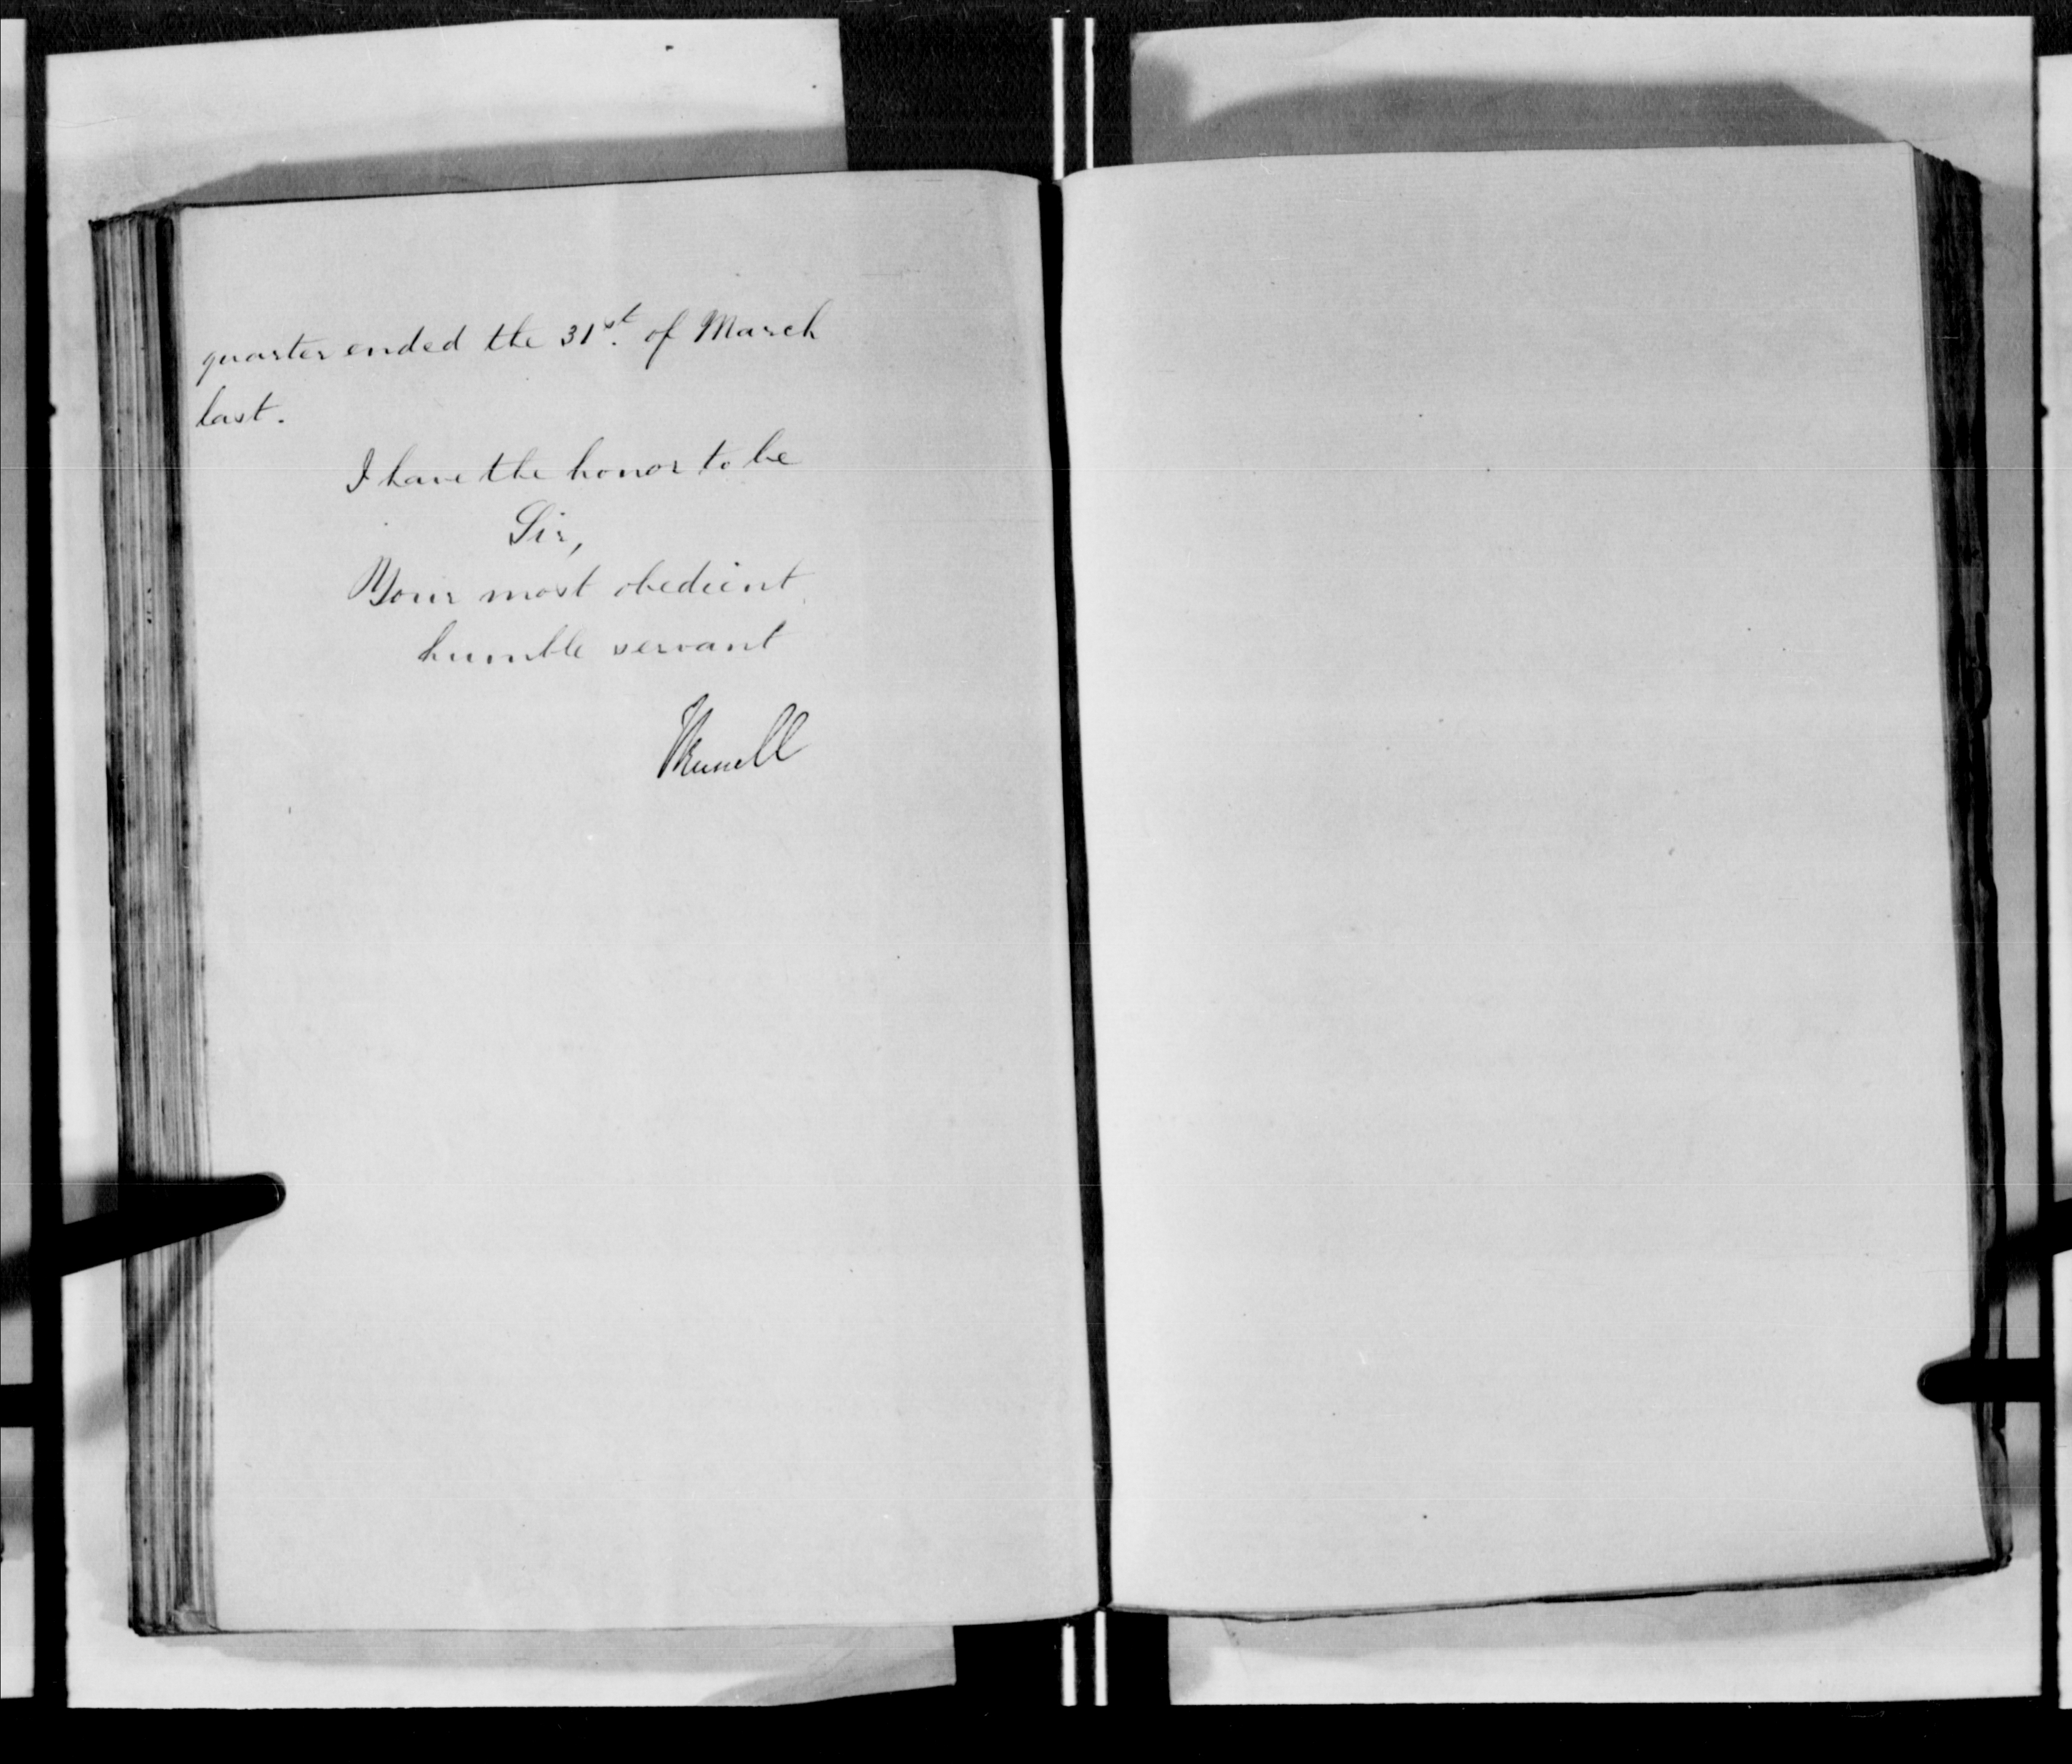 quarter ended the 31st. of March
last.
I have the honor to be
Sir,
Your most obedient
humble servant
Russell